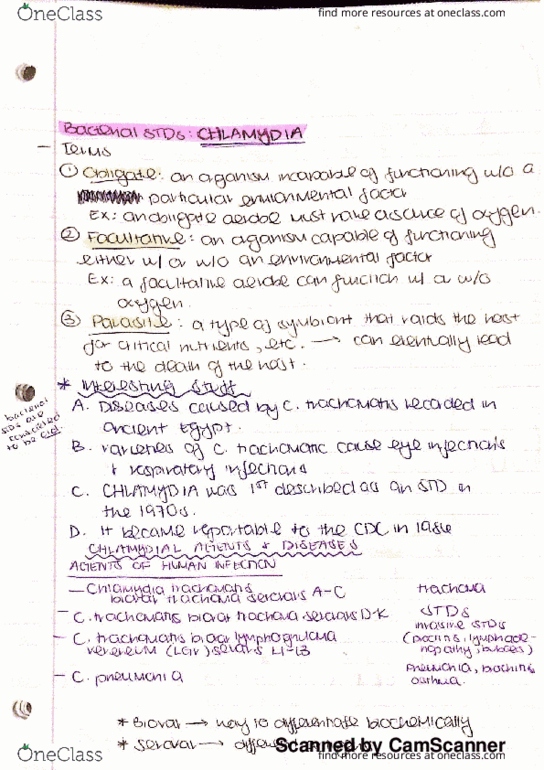 OneClass
find more resources at oneclass.com
Bacterial STDs: CHLAMYDIA
— Terms
① Obligate: an organism incapable of functioning w/o a
particular environmental factor
Ex: an obligate aerobe must have a source of oxygen.
② Facultative: an organism capable of functioning
either w/ or w/o an environmental factor
Ex: a facultative aerobe can function w/ or w/o
oxygen.
③ Parasite: a type of symbiont that raids the host
for critical nutrients, etc. → can eventually lead
to the death of the host.
* Interesting Stuff
bacterial
STDs are
considered
to be
A. Diseases caused by C. trachomatis recorded in
ancient Egypt.
B. varieties of C. trachomatic cause eye infections
+ respiratory infections
C. CHLAMYDIA was 1st described as an STD in
the 1970s.
D. It became reportable to the CDC in 1986
CHLAMYDIAL AGENTS + DISEASES
AGENTS OF HUMAN INFECTION
— Chlamydia trachomatis
biovar trachoma serovars A-C trachoma
— C. trachomatis biovar trachoma serovars D-K STDs
— C. trachomatis biovar lymphogranuloma
venereum (LGV) serovars L1-L3
invasive STDs
(proctitis, lymphade-
nopathy, buboes)
— C. pneumonia
pneumonia, bronchitis
asthma.
* Biovar → way to differentiate biochemically
* Serovar →
Scanned by CamScanner
OneClass
find more resources at oneclass.com